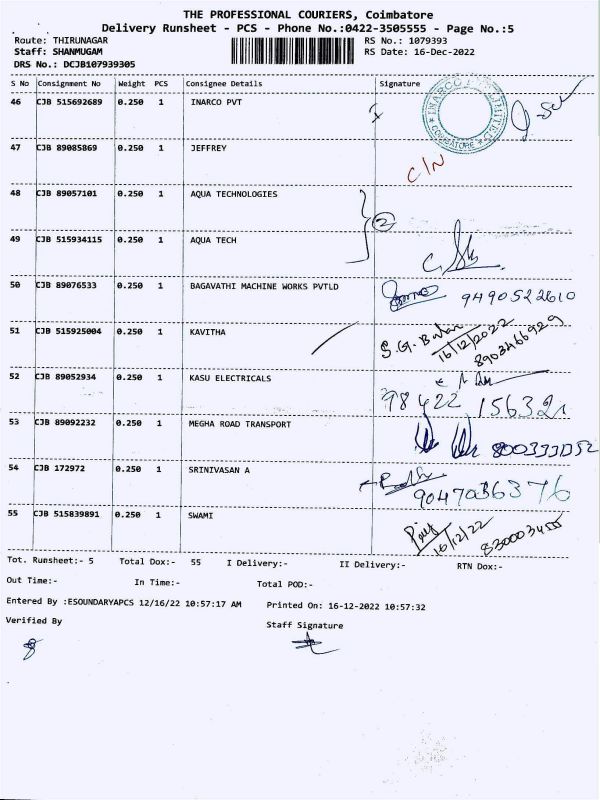 THE PROFESSIONAL COURIERS, Coimbatore
Delivery Runsheet - PCS - Phone No.:0422-3505555 - Page No.:5
Route: THIRUNAGAR
RS No.: 1079393
Staff: SHANMUGAM
RS Date: 16-Dec-2022
DRS No.: DCJB107939305
S No Consignment No Weight PCS Consignee Details Signature
46 CJB 515692689 0.250 1 INARCO PVT
INARCO LIMITED
COIMBATORE
47 CJB 89085869 0.250 1 JEFFREY
C/N
48 CJB 89057101 0.250 1 AQUA TECHNOLOGIES
2
49 CJB 515934115 0.250 1 AQUA TECH
50 CJB 89076533 0.250 1 BAGAVATHI MACHINE WORKS PVTLD 9490522610
51 CJB 515925004 0.250 1 KAVITHA S.G.
16/12/2022
8903466929
52 CJB 89052934 0.250 1 KASU ELECTRICALS
98422 156321
53 CJB 89092232 0.250 1 MEGHA ROAD TRANSPORT
54 CJB 172972 0.250 1 SRINIVASAN A
9047036376
55 CJB 515839891 0.250 1 SWAMI
16/12/22
Tot. Runsheet:- 5 Total Dox:- 55 I Delivery:- II Delivery:- RTN Dox:-
Out Time:- In Time:- Total POD:-
Entered By :ESOUNDARYAPCS 12/16/22 10:57:17 AM Printed On: 16-12-2022 10:57:32
Verified By
Staff Signature